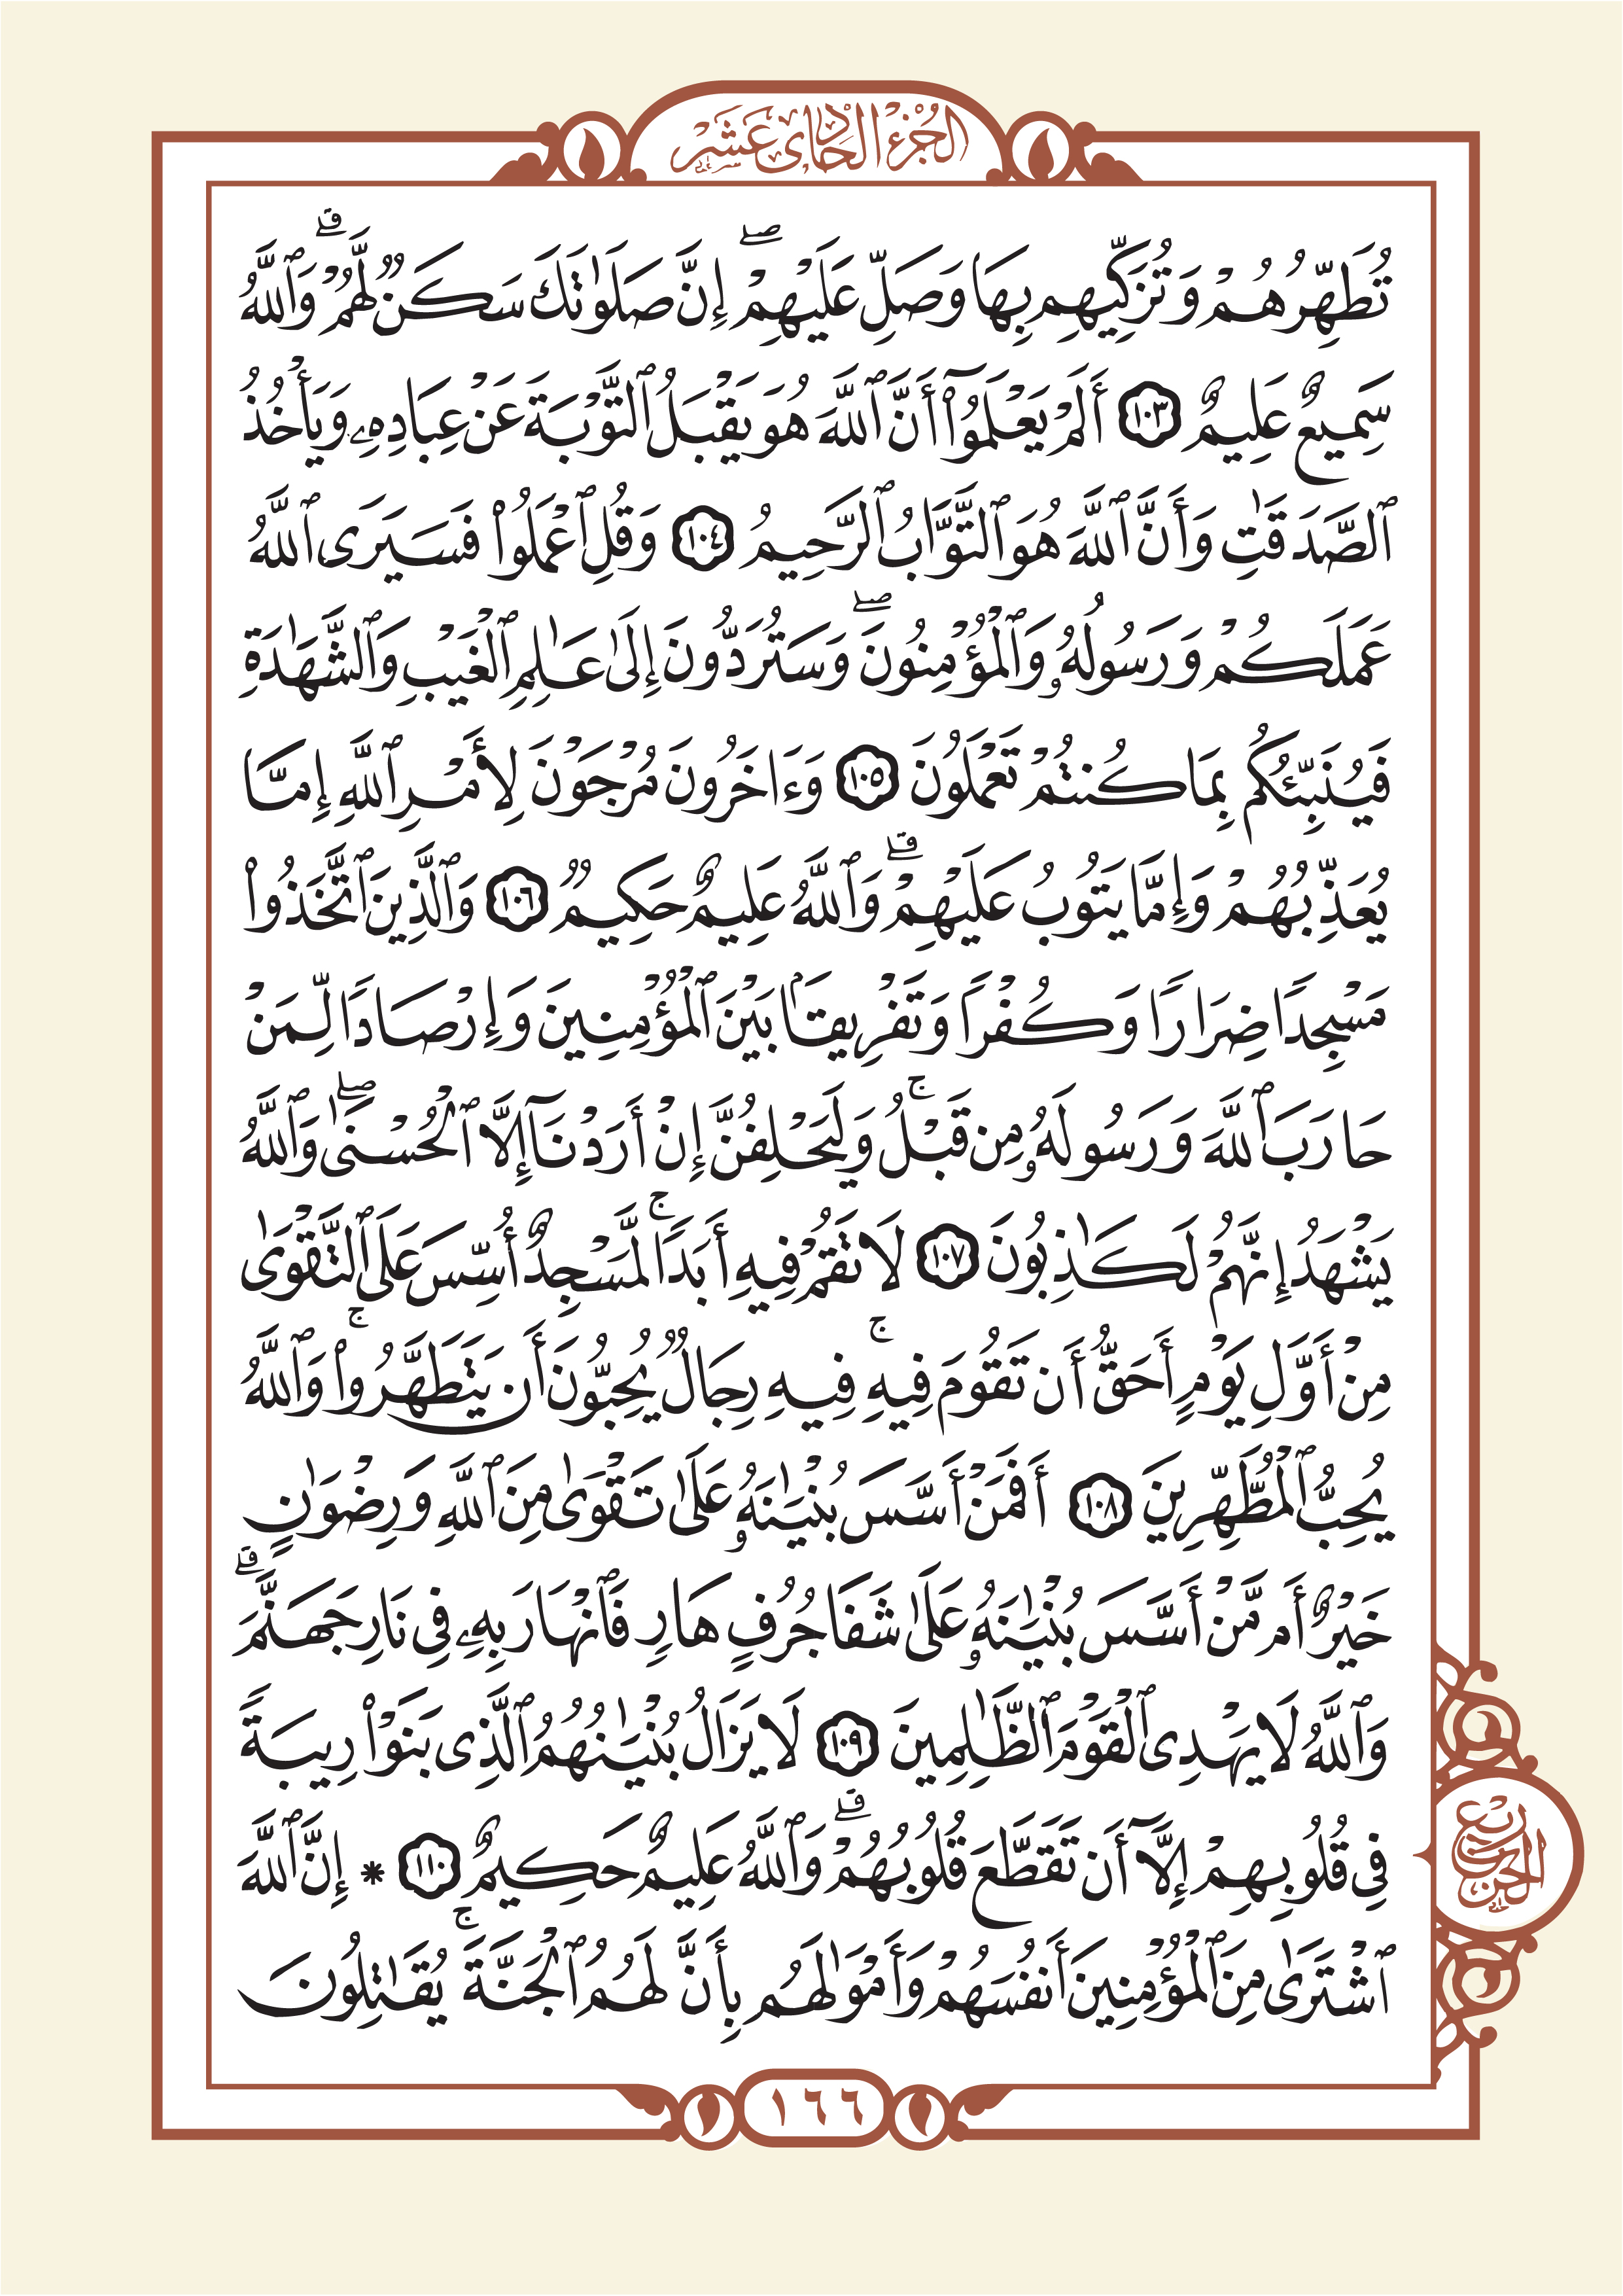 الجزء الحادى عشر
تُطَهِّرُهُمْ وَتُزَكِّيهِم بِهَا وَصَلِّ عَلَيْهِمْ ۖ إِنَّ صَلَوٰتَكَ سَكَنٌ لَّهُمْ ۗ وَٱللَّهُ
سَمِيعٌ عَلِيمٌ ١٠٣ أَلَمْ يَعْلَمُوٓا۟ أَنَّ ٱللَّهَ هُوَ يَقْبَلُ ٱلتَّوْبَةَ عَنْ عِبَادِهِۦ وَيَأْخُذُ
ٱلصَّدَقَٰتِ وَأَنَّ ٱللَّهَ هُوَ ٱلتَّوَّابُ ٱلرَّحِيمُ ١٠٤ وَقُلِ ٱعْمَلُوا۟ فَسَيَرَى ٱللَّهُ
عَمَلَكُمْ وَرَسُولُهُۥ وَٱلْمُؤْمِنُونَ ۖ وَسَتُرَدُّونَ إِلَىٰ عَٰلِمِ ٱلْغَيْبِ وَٱلشَّهَٰدَةِ
فَيُنَبِّئُكُم بِمَا كُنتُمْ تَعْمَلُونَ ١٠٥ وَءَاخَرُونَ مُرْجَوْنَ لِأَمْرِ ٱللَّهِ إِمَّا
يُعَذِّبُهُمْ وَإِمَّا يَتُوبُ عَلَيْهِمْ ۗ وَٱللَّهُ عَلِيمٌ حَكِيمٌ ١٠٦ وَٱلَّذِينَ ٱتَّخَذُوا۟
مَسْجِدًا ضِرَارًا وَكُفْرًا وَتَفْرِيقًۢا بَيْنَ ٱلْمُؤْمِنِينَ وَإِرْصَادًا لِّمَنْ
حَارَبَ ٱللَّهَ وَرَسُولَهُۥ مِن قَبْلُ ۚ وَلَيَحْلِفُنَّ إِنْ أَرَدْنَآ إِلَّا ٱلْحُسْنَىٰ ۖ وَٱللَّهُ
يَشْهَدُ إِنَّهُمْ لَكَٰذِبُونَ ١٠٧ لَا تَقُمْ فِيهِ أَبَدًا ۚ لَّمَسْجِدٌ أُسِّسَ عَلَى ٱلتَّقْوَىٰ
مِنْ أَوَّلِ يَوْمٍ أَحَقُّ أَن تَقُومَ فِيهِ ۚ فِيهِ رِجَالٌ يُحِبُّونَ أَن يَتَطَهَّرُوا۟ ۚ وَٱللَّهُ
يُحِبُّ ٱلْمُطَّهِّرِينَ ١٠٨ أَفَمَنْ أَسَّسَ بُنْيَٰنَهُۥ عَلَىٰ تَقْوَىٰ مِنَ ٱللَّهِ وَرِضْوَٰنٍ
خَيْرٌ أَم مَّنْ أَسَّسَ بُنْيَٰنَهُۥ عَلَىٰ شَفَا جُرُفٍ هَارٍ فَٱنْهَارَ بِهِۦ فِى نَارِ جَهَنَّمَ ۗ
وَٱللَّهُ لَا يَهْدِى ٱلْقَوْمَ ٱلظَّٰلِمِينَ ١٠٩ لَا يَزَالُ بُنْيَٰنُهُمُ ٱلَّذِى بَنَوْا۟ رِيبَةً
فِى قُلُوبِهِمْ إِلَّآ أَن تَقَطَّعَ قُلُوبُهُمْ ۗ وَٱللَّهُ عَلِيمٌ حَكِيمٌ ١١٠ * إِنَّ ٱللَّهَ
ٱشْتَرَىٰ مِنَ ٱلْمُؤْمِنِينَ أَنفُسَهُمْ وَأَمْوَٰلَهُم بِأَنَّ لَهُمُ ٱلْجَنَّةَ ۚ يُقَٰتِلُونَ
ربع الحزب
١٦٦